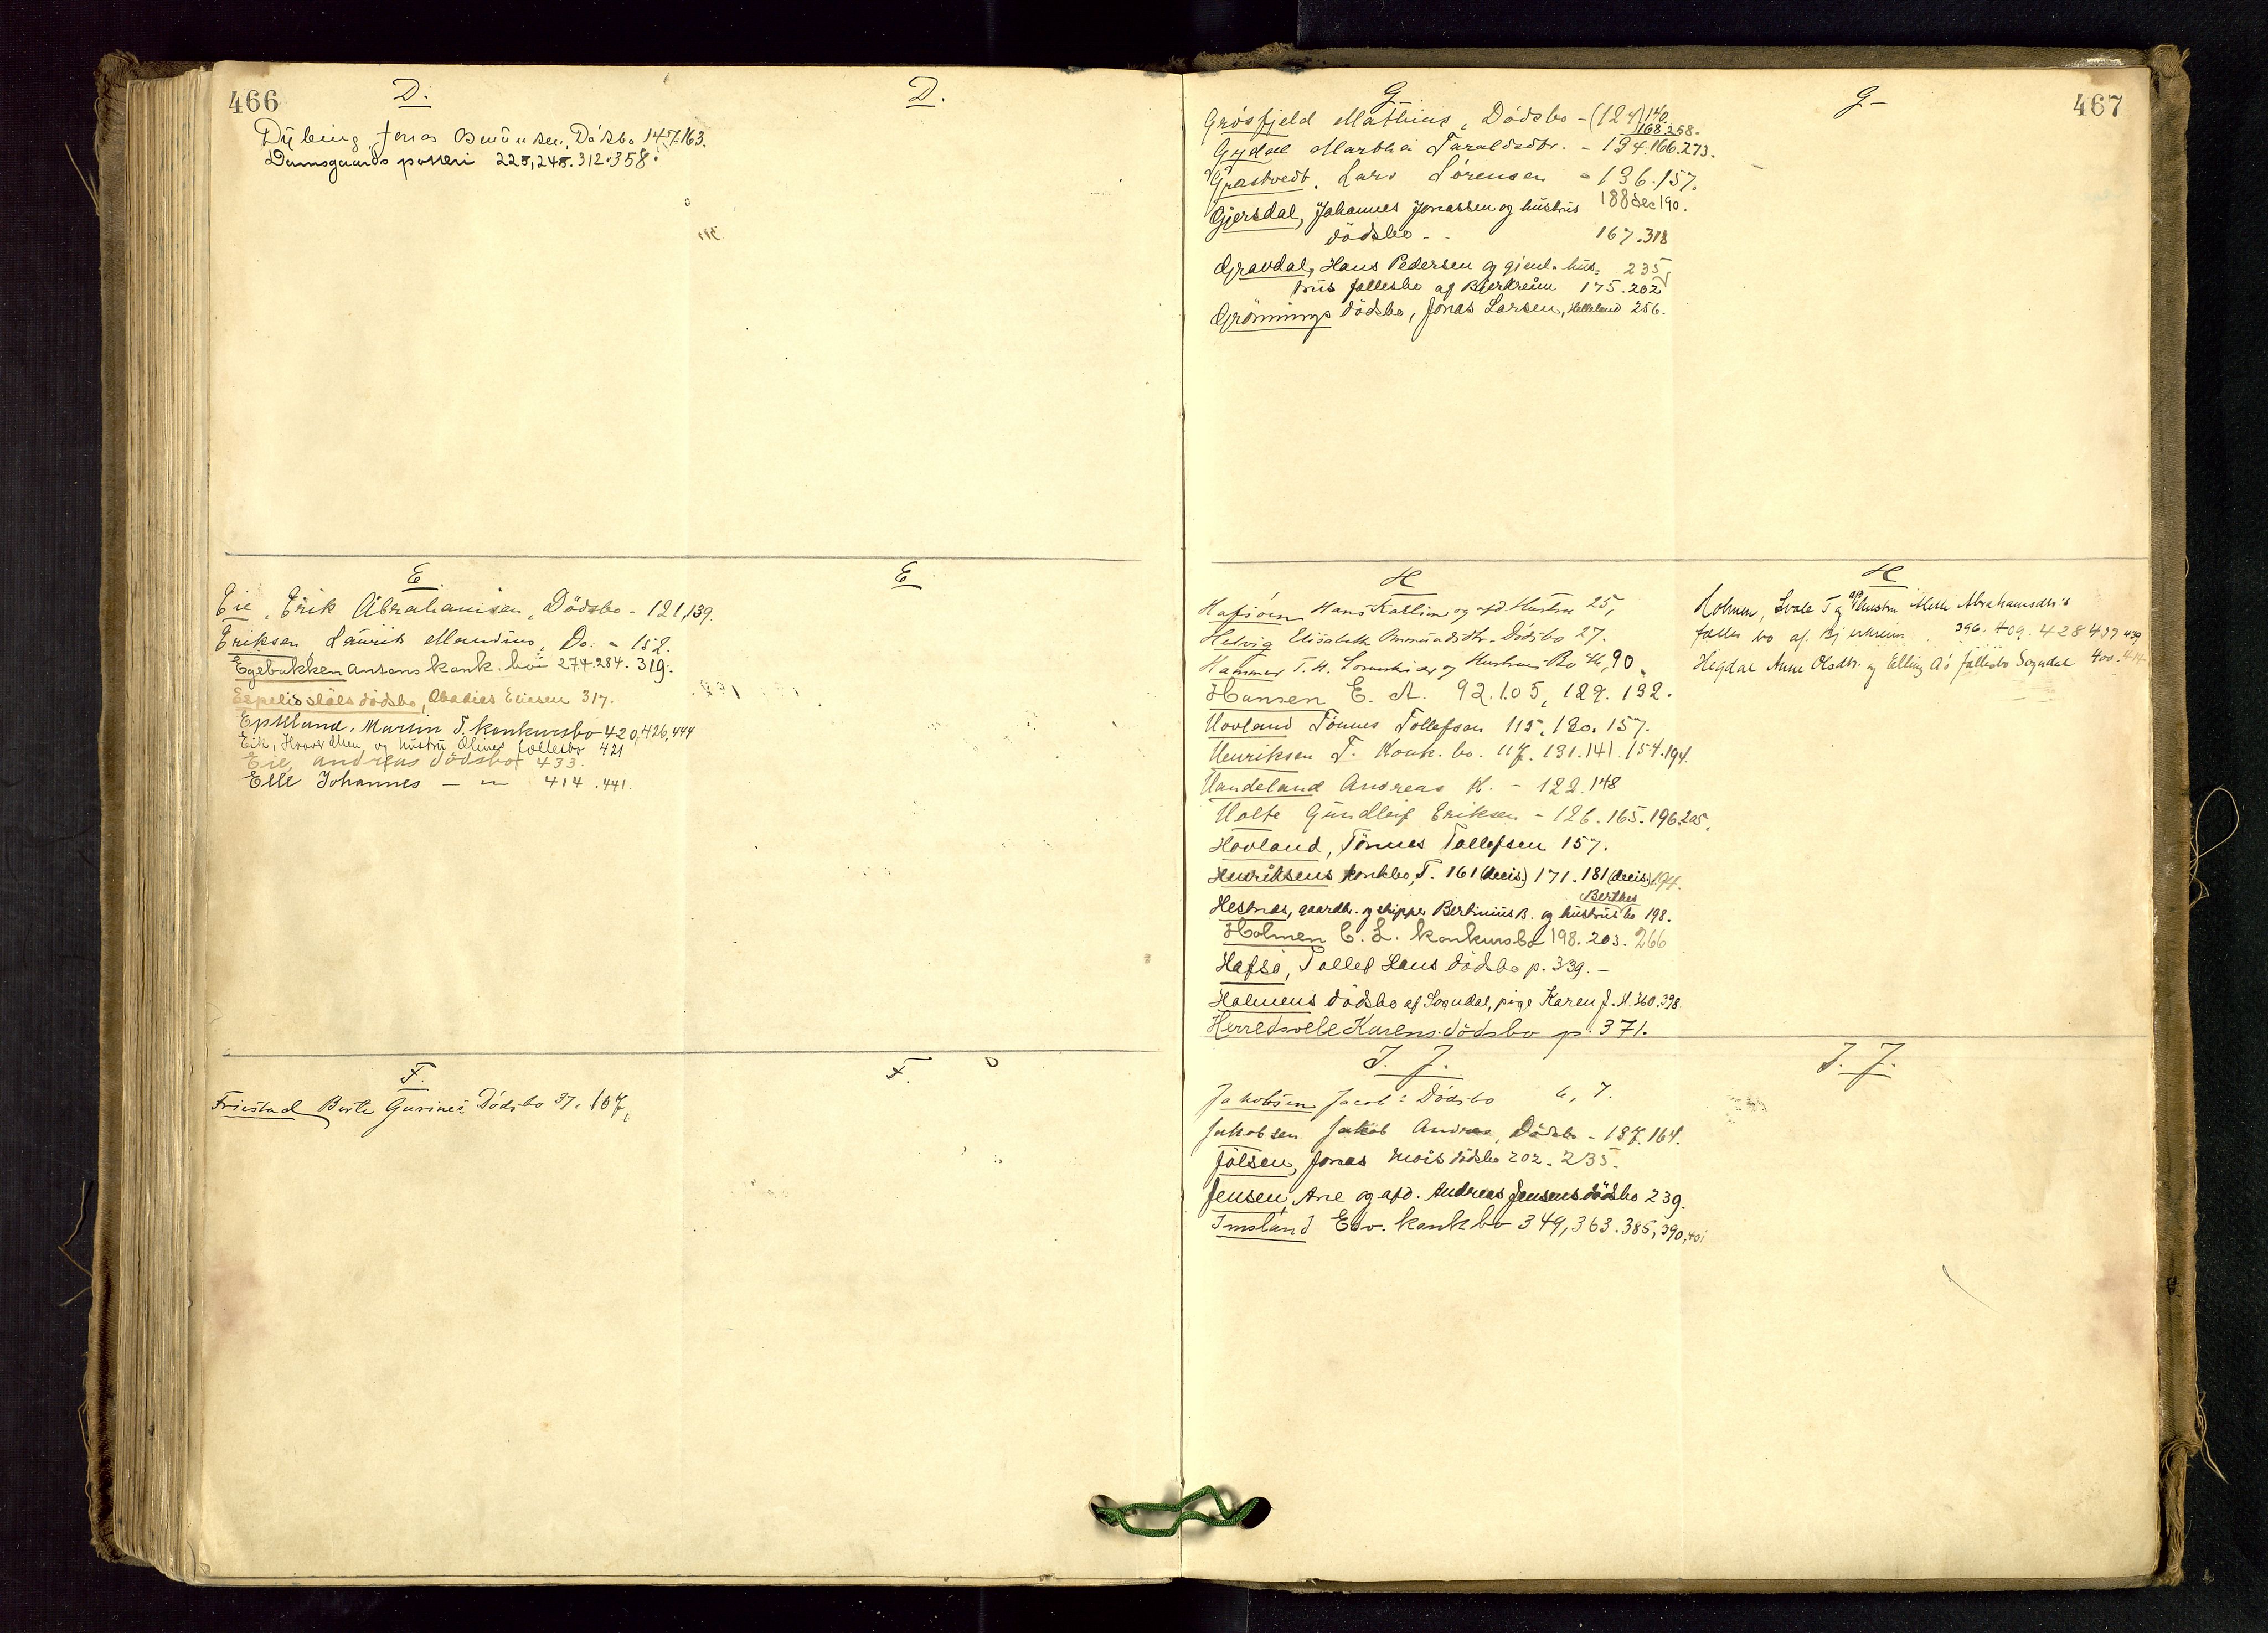 466
D.
D.
Dybing, Jonas Osmundsen, Dödsbo 147.163.
Damsgaards 225, 245. 312.358.
E.
E
Eie, Erik Abrahamsen, Dödsbo - 121, 139.
Eriksen, Laurits Mandius, Do. - 152.
Egebakken Ansons konk. bo 274.284. 319.
dödsbo, Abadias Eriesen 317.
Epteland, Martin T. konkursbo 420, 426, 444
Eik, Olsen og hustru fællesbo 421
Eie, Andreas dödsbo 433.
Elle Johannes — " — 414. 441.
F.
F.
Friestad Berte Gurine Dödsbo 37. 107,
467
G.
G-
Grösfjeld Mathias, Dödsbo - (124) 140.
168.258.
Gydal Martha Taraldsdtr. - 134.166.273.
Grastvedt, Lars Sörensen - 136.157.
Gjersdal, Johannes Jonassen og hustrus 188 dec 190.
dödsbo - - 167.318
Gravdal, Hans Pedersen og gjenl. hus- 235,
trus fællesbo af Bjerkreim 175.202
Grönnings dödsbo, Jonas Larsen, Helleland 256.
H
H
Hafsöen Hans Karlsen og afd. Hustru 25,
Helvig Elisabeth Ommundsdtr. Dödsbo 27.
Hammer T. H. og Hustrus Bo 90.
Hansen E. A. 92.105, 129. 132.
Hovland Tönnes Tollefsen 115, 120. 157.
Henriksen T. Konk. bo. 117. 131.141. 154.194.
Haudeland Andreas K. - 122.148
Holte Gundleif Eriksen - 126. 165. 196.205,
Hovland, Tönnes Tollefsen 157.
Henriksens konkbo, T. 161 (decis.) 171. 181 (decis.) 194.
Berthes
Hestnes, gaardbr. og skipper Bertinius B. og hustrus bo 198.
Holmen C. L. konkursbo 198. 203. 266
Hafsö, Tollef Hans dödsbo p. 339. -
Holmens dödsbo af Sogndal, pige Karen J. H. 360.398.
Herredsvele Karens dödsbo p. 371.
Holmen, Svale T og afd. hustru Mette Abrahamsdtr's
fælles bo af Bjerkreim 396. 409. 428 437 439
Hegdal Anne Olsdtr. og Elling A's fællesbo Sogndal 400.
I. J.
I. J.
Jakobsen Jacob: Dödsbo 6, 7.
Jakobsen Jakob Andreas, Dödsbo - 137.164.
Jölsen, Jonas Mois dödsbo 202. 235.
Jensen, Ane og afd. Andreas Jensens dödsbo 239.
Imsland Edv. konkbo 349, 363. 385, 390, 401